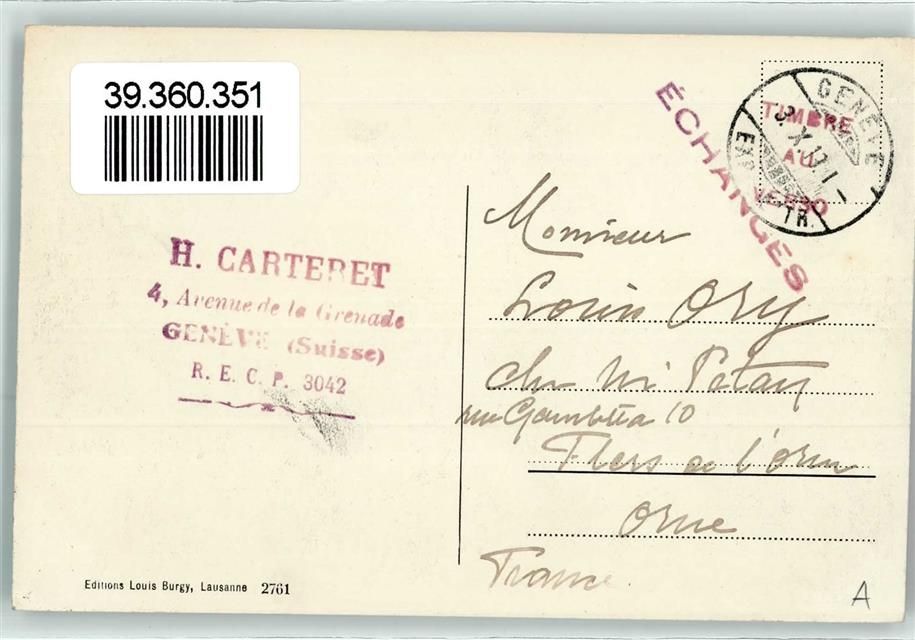 39.360.351
TIMBRE
AU
VERSO
GENÈVE
EXP. LETTR.
3. X. 12. I -
ÉCHANGES
H. CARTERET
4, Avenue de la Grenade
GENÈVE (Suisse)
R. E. C. P. 3042
Monsieur
Louis Ory
chez Mr
rue Gambetta 10
Flers de l'Orne
Orne
France
Editions Louis Burgy, Lausanne 2761
A